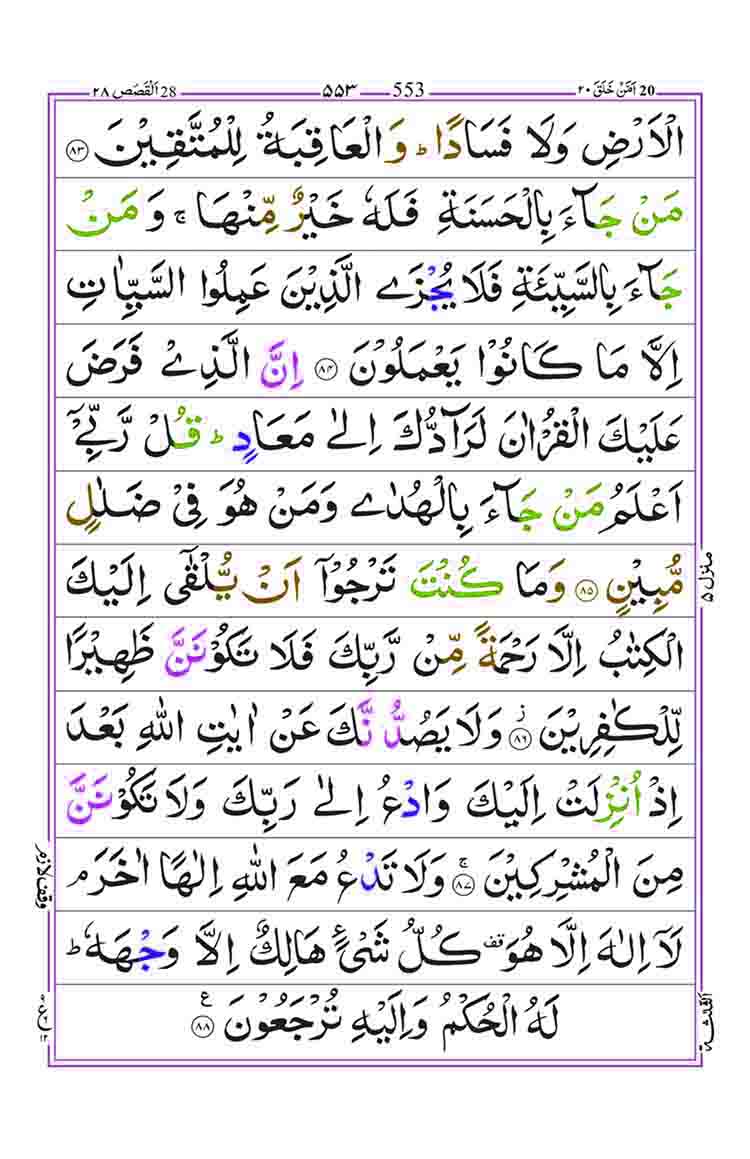 20 اَمَّنْ خَلَقَ ٢٠ 553 ۵۵۳ 28 اَلْقَصَص ٢٨
الْاَرْضِ وَلَا فَسَادًا ؕ وَالْعَاقِبَةُ لِلْمُتَّقِيْنَ ﴿۸۳﴾
مَنْ جَآءَ بِالْحَسَنَةِ فَلَهٗ خَيْرٌ مِّنْهَا ۚ وَمَنْ
جَآءَ بِالسَّيِّئَةِ فَلَا يُجْزَى الَّذِيْنَ عَمِلُوا السَّيِّاٰتِ
اِلَّا مَا كَانُوْا يَعْمَلُوْنَ ﴿۸۴﴾ اِنَّ الَّذِيْ فَرَضَ
عَلَيْكَ الْقُرْاٰنَ لَرَآدُّكَ اِلٰى مَعَادٍ ؕ قُلْ رَّبِّيْٓ
اَعْلَمُ مَنْ جَآءَ بِالْهُدٰى وَمَنْ هُوَ فِيْ ضَلٰلٍ
مُّبِيْنٍ ﴿۸۵﴾ وَمَا كُنْتَ تَرْجُوْٓا اَنْ يُّلْقٰٓى اِلَيْكَ
الْكِتٰبُ اِلَّا رَحْمَةً مِّنْ رَّبِّكَ فَلَا تَكُوْنَنَّ ظَهِيْرًا
لِّلْكٰفِرِيْنَ ؗ ﴿۸۶﴾ وَلَا يَصُدُّنَّكَ عَنْ اٰيٰتِ اللّٰهِ بَعْدَ
اِذْ اُنْزِلَتْ اِلَيْكَ وَادْعُ اِلٰى رَبِّكَ وَلَا تَكُوْنَنَّ
مِنَ الْمُشْرِكِيْنَ ۚ ﴿۸۷﴾ وَلَا تَدْعُ مَعَ اللّٰهِ اِلٰهًا اٰخَرَ ۘ
لَآ اِلٰهَ اِلَّا هُوَ قف كُلُّ شَيْءٍ هَالِكٌ اِلَّا وَجْهَهٗ ؕ
لَهُ الْحُكْمُ وَاِلَيْهِ تُرْجَعُوْنَ ﴿۸۸﴾ ع
منزل ۵
وقف لازم
الثلثة